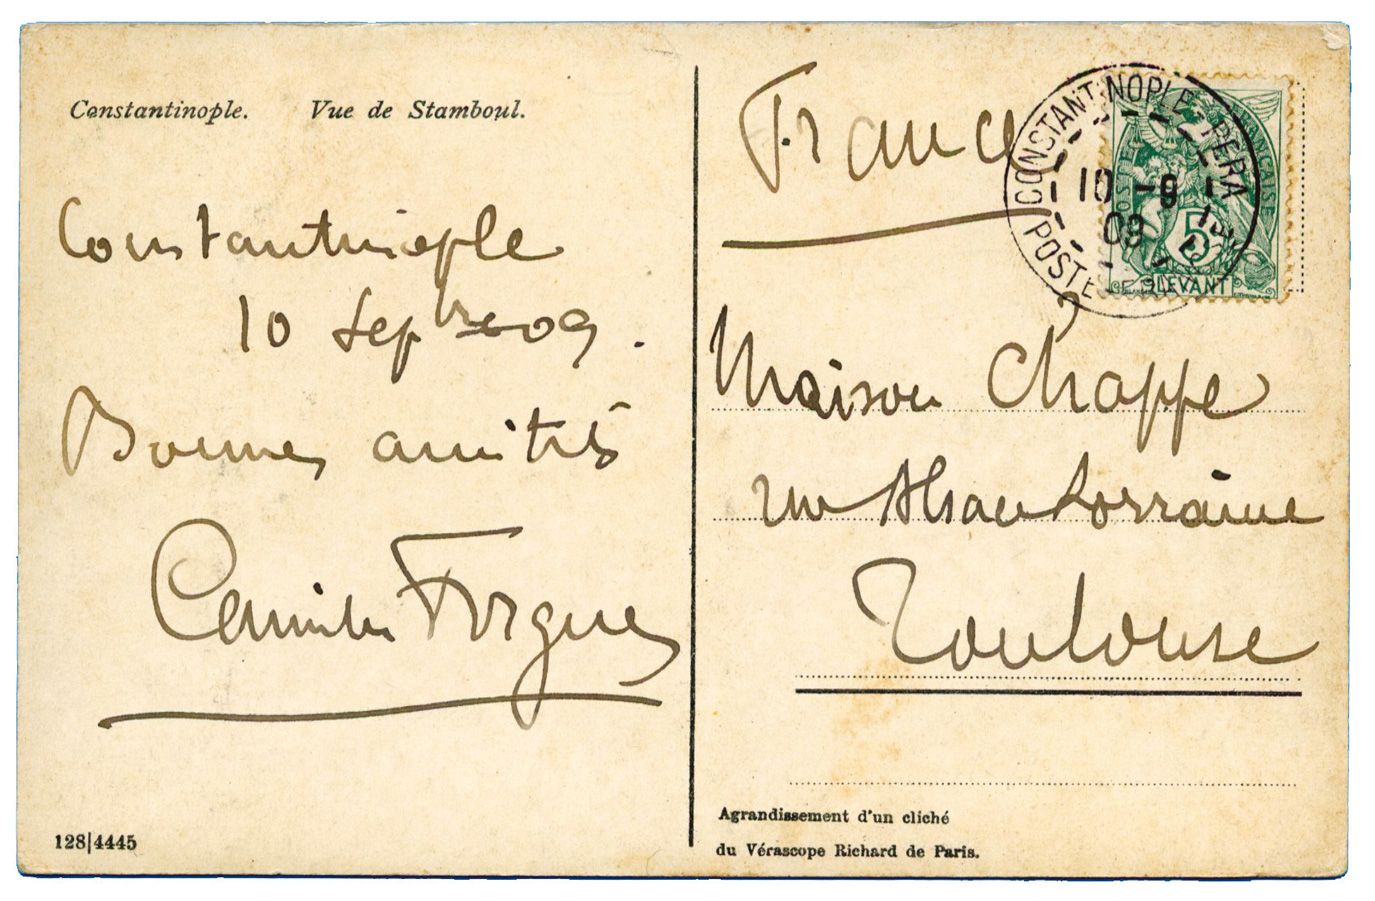 Constantinople. Vue de Stamboul.
Constantinople
10 Sepbre 09.
Bonnes amitiés
Camille Forgues
128|4445
France
CONSTANTINOPLE PERA
10 -9
09
POSTE
POSTE FRANÇAISE
5
LEVANT
Maison Chappe
rue Alsace Lorraine
Toulouse
Agrandissement d'un cliché
du Vérascope Richard de Paris.